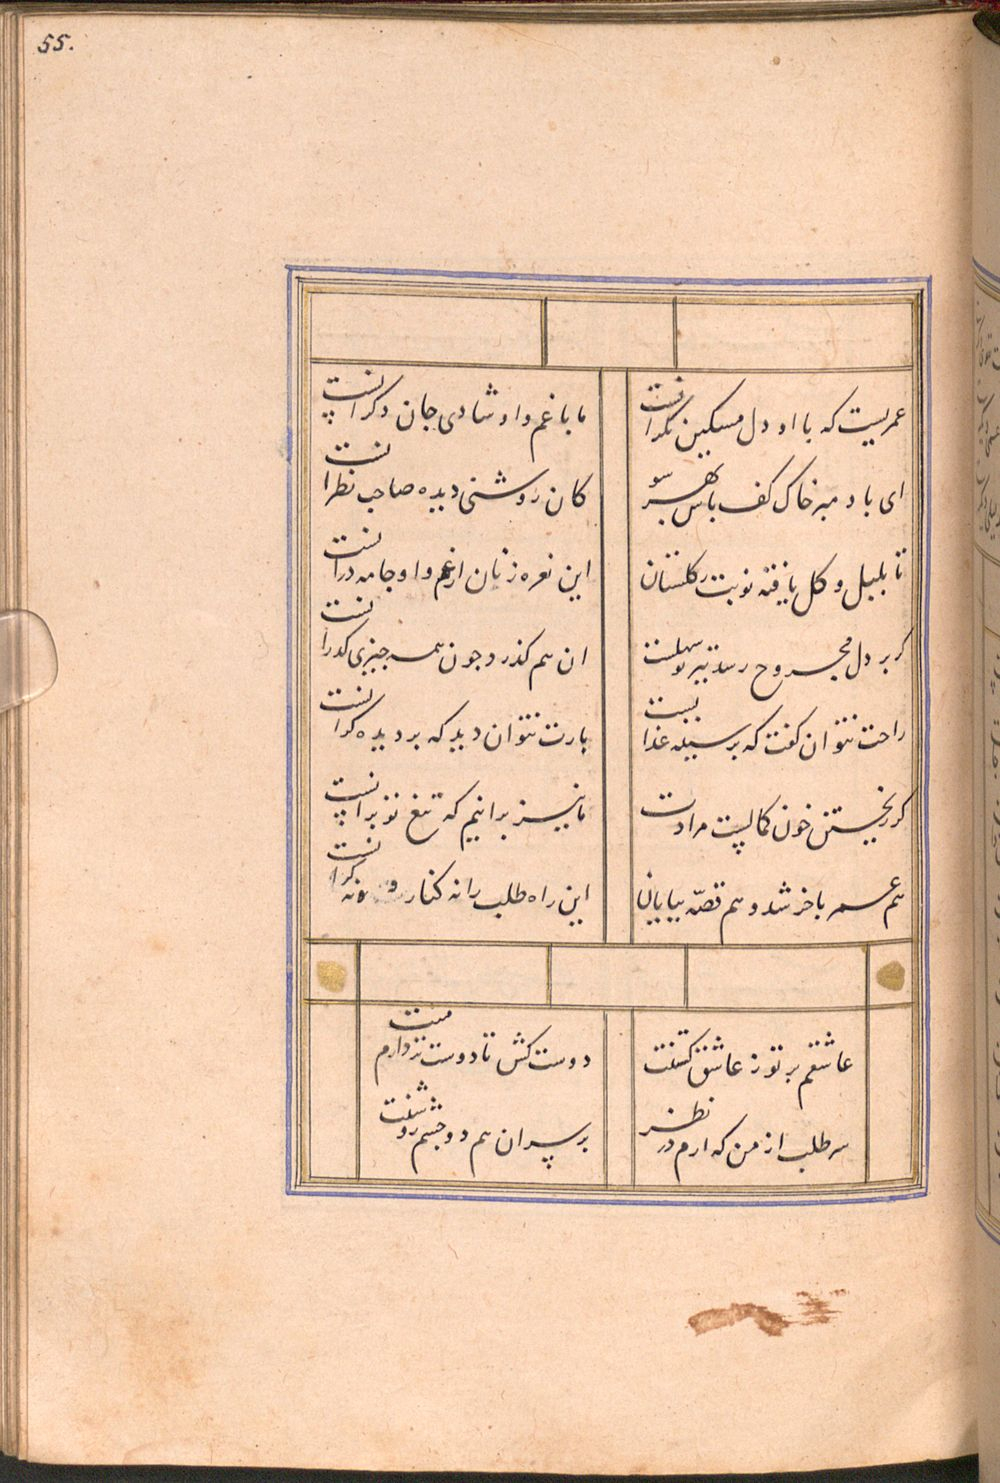 55.
عمریست که با او دل مسکین نکرانست
ما با غم و او شادی جان دکرانست
ای باد مبر خاک کف پاش بهر سو
کان روشنی دیده صاحب نظرانست
تا بلبل و کل یافته نوبت ز کلستان
این نعره زنان از غم و او جامه درانست
کر بر دل مجروح رسد تیر تو سهلست
ان هم کذرد چون همه چیزی کذرانست
راحت نتوان کفت که بر سینه غذا نیست
بارت نتوان دید که بر دیده کرانست
کر ریختن خون کمالیت مرادت
ما نیز برانیم که تیغ تو برانست
هم عمر باخر شد و هم قصه بپایان
این راه طلب را نه کنار و نه کرانست
عاشقم بر تو ز عاشق کشنت
دوست کش تا دوست تر دارم منت
سر طلب از من که ارم در نظر
بر سر ان هم دو چشم روشنت